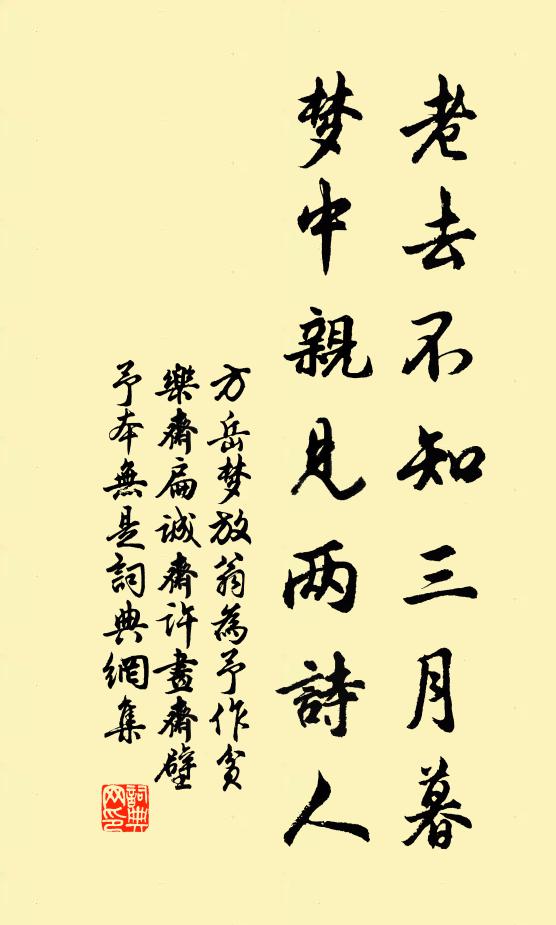 老去不知三月暮
梦中親見两詩人
方岳梦放翁為予作貧
樂齋扁诚齋许畫齋壁
予本無是詞典網集
詞典
网印